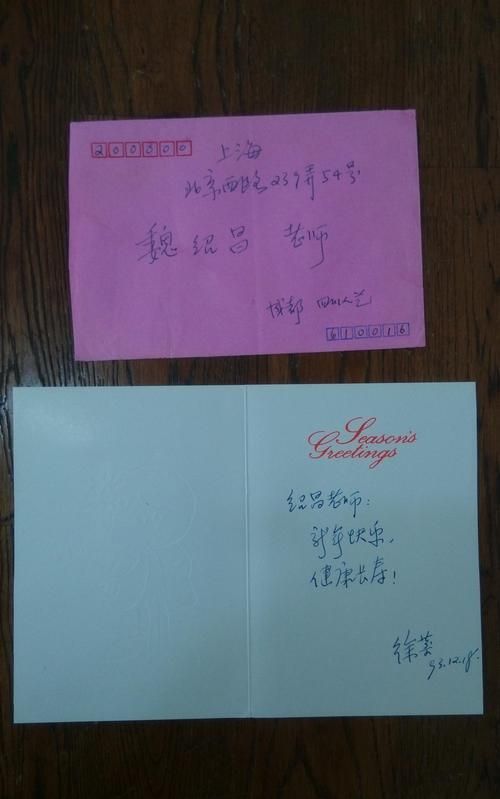 200000
上海
北京西路239弄54号
魏绍昌 老师
成都 四川人艺
610016
Season's
Greetings
绍昌老师：
新年快乐，
健康长寿！
徐棻
93.12.18.